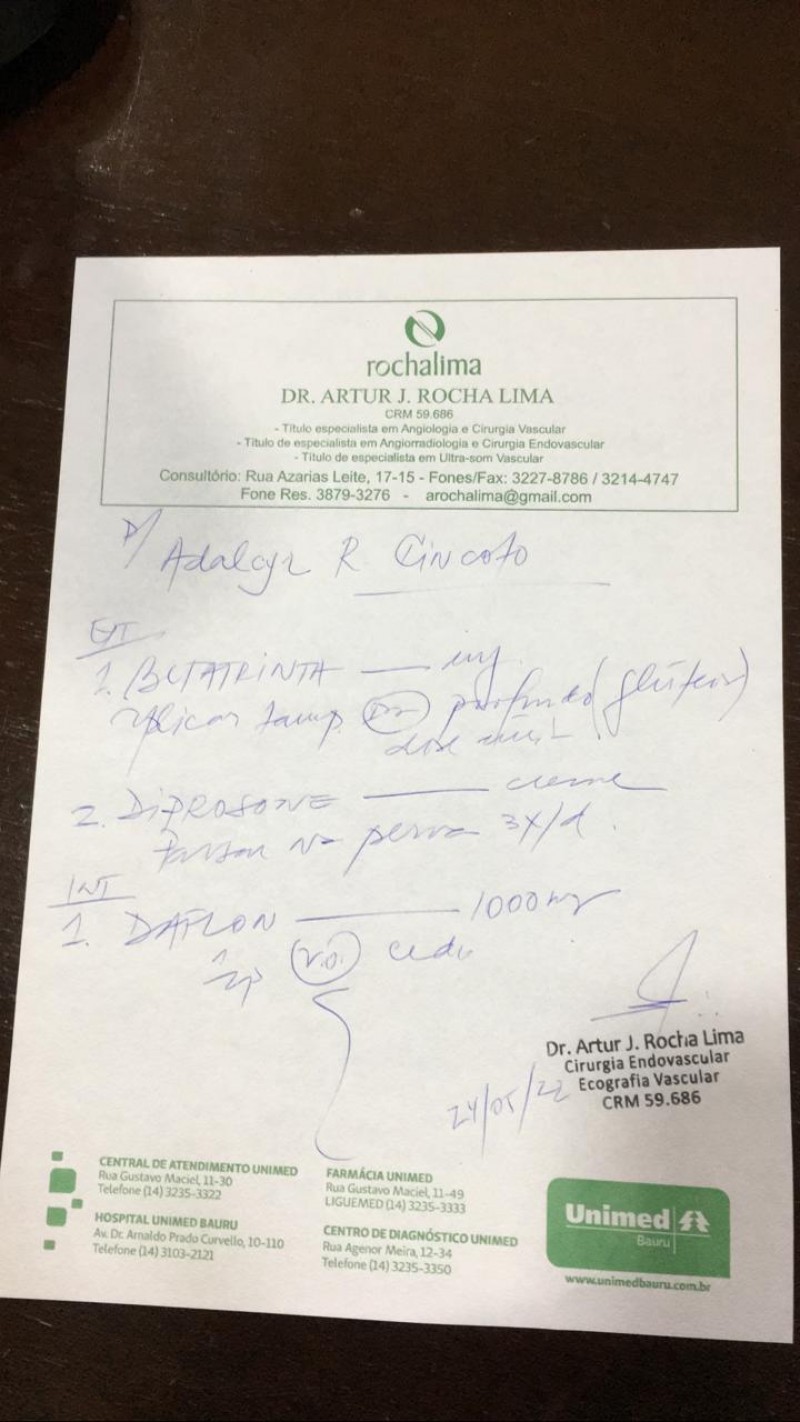 rochalima
DR. ARTUR J. ROCHA LIMA
CRM 59.686
- Título especialista em Angiologia e Cirurgia Vascular
- Título de especialista em Angiorradiologia e Cirurgia Endovascular
- Título de especialista em Ultra-som Vascular
Consultório: Rua Azarias Leite, 17-15 - Fones/Fax: 3227-8786 / 3214-4747
Fone Res. 3879-3276 - arochalima@gmail.com
p/ Adalcyr R. Cincoto
EXT
1. BETATRINTA inj.
Aplicar 1 amp. profundo (glúteos)
dose
2. DIPROSONE creme
Passar na perna 3x/d.
INT
1. DAFLON 1000mg
V.O. cedo
Dr. Artur J. Rocha Lima
Cirurgia Endovascular
Ecografia Vascular
CRM 59.686
24/05/22
CENTRAL DE ATENDIMENTO UNIMED
Rua Gustavo Maciel, 11-30
Telefone (14) 3235-3322
HOSPITAL UNIMED BAURU
Av. Dr. Arnaldo Prado Curvello, 10-110
Telefone (14) 3103-2121
FARMÁCIA UNIMED
Rua Gustavo Maciel, 11-49
LIGUEMED (14) 3235-3333
CENTRO DE DIAGNÓSTICO UNIMED
Rua Agenor Meira, 12-34
Telefone (14) 3235-3350
Unimed
Bauru
www.unimedbauru.com.br